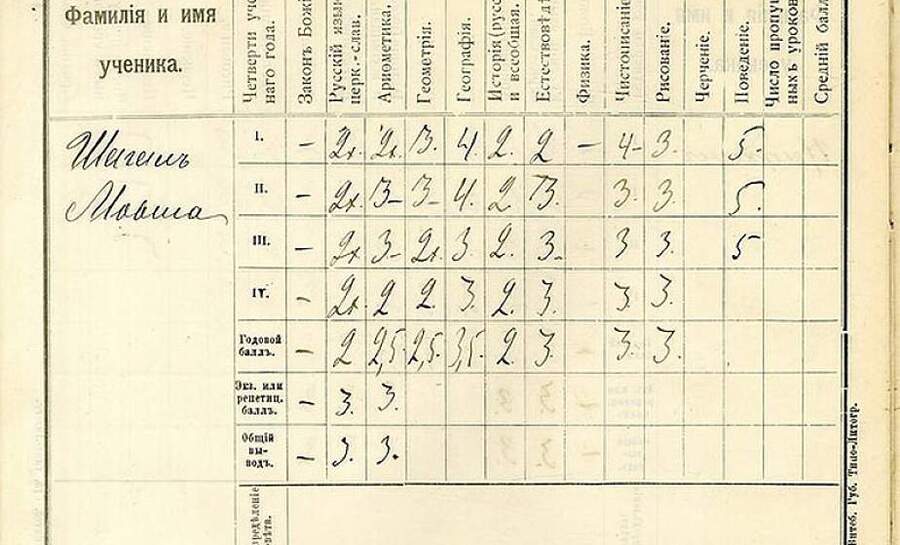 Фамилія и имя
ученика.
Четверти уче
наго года.
Законъ Божі
Русскій язык
церк.-слав.
Ариѳметика.
Геометрія.
Географія.
Исторія (русс
и всеобщая.
Естествовѣдѣ
Физика.
Чистописаніе.
Рисованіе.
Черченіе.
Поведеніе.
Число пропу
ныхъ уроков
Средній балл
Шагалъ
Мовша
I. – 2 2 3. 4 2. 2 – 4- 3. 5.
II. – 2 3- 3- 4. 2 3. 3. 3. 5.
III. – 2 3- 2 3. 2. 3- 3 3. 5
IV. – 2 2 2. 3. 2. 3. 3. 3.
Годовой
баллъ. – 2 2,5. 2,5. 3,5. 2. 3. 3. 3.
Экз. или
репетиц.
баллъ. – 3. 3.
Общій
вы-
водъ. – 3. 3.
предѣленіе
вѣта.
Витеб. Губ. Типо-Литогр.